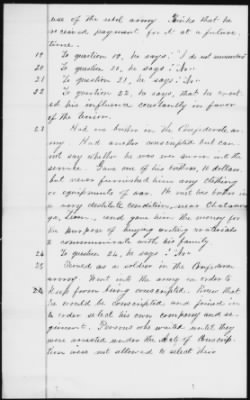 use of the rebel army. Thinks that he
received payment for it at a future
time.
19 To question 19, he says: "I do not remember"
20 To question 20, he says: No
21 To question 21, he says: No
22 To question 22, he says, that he exert
ed his influence constantly in favor
of the Union.
23 Had no brother in the Confederate ar
my. Had another conscripted but can
not say whether he was ever sworn into the
service. Gave one of his brothers, 10 dollars
but never furnished him any clothing
or equipments of war. He met his brother in
a very destitute condition, near Chatanoo
ga, Tenn., and gave him the money for
the purpose of buying writing materials
to communicate with his family
24 To question 24, he says: No
25 Served as a soldier in the Confederate
army. Went into the army in order to
keep from being conscripted. Knew that
he would be conscripted and joined in
order to select his own company and re
giment. Persons who waited until they
were arrested under the Acts of Conscrip
tion were not allowed to select their